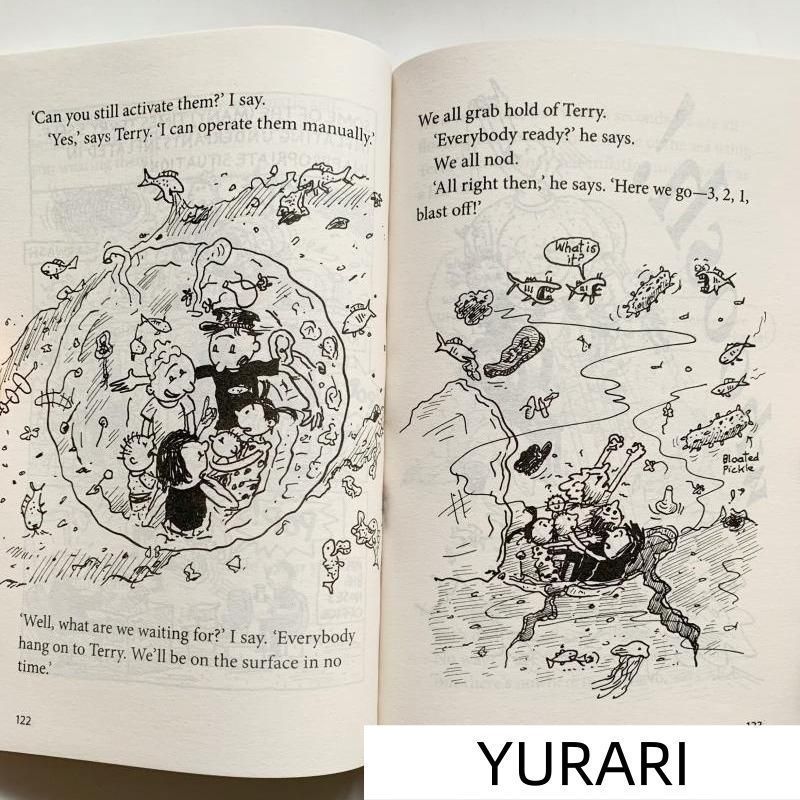 ‘Can you still activate them?’ I say.
‘Yes,’ says Terry. ‘I can operate them manually.’
‘Well, what are we waiting for?’ I say. ‘Everybody
hang on to Terry. We’ll be on the surface in no
time.’
122
We all grab hold of Terry.
‘Everybody ready?’ he says.
We all nod.
‘All right then,’ he says. ‘Here we go—3, 2, 1,
blast off!’
What is
it?
Bloated
Pickle
YURARI